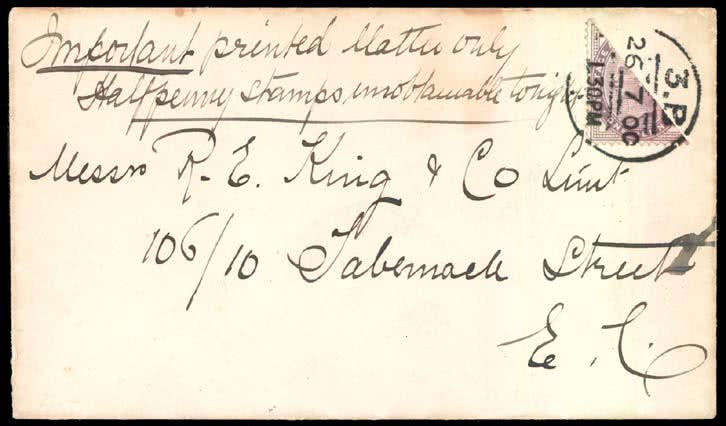 Important printed Matter only
Halfpenny stamps unobtainable tonight
3.P
26 7 00
1.30PM
Messrs R. E. King & Co Limt
106/10 Tabernacle Street
E. C.